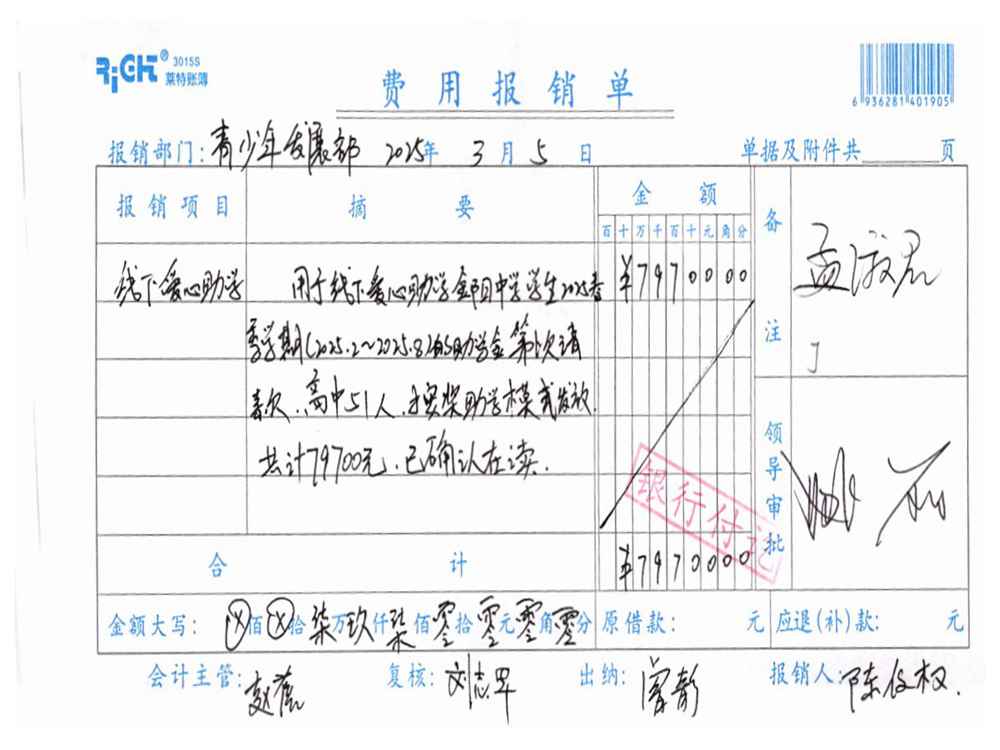 RiGHT® 3015S
莱特账簿
费用报销单
6 936281 401905
报销部门:青少年发展部 2025年 3月 5日 单据及附件共 页
报销项目 摘要 金额 备注
百十万千百十元角分
线下爱心助学 用于线下爱心助学 中学学生2025春 ¥7970000
季学期(2025.2~2025.8)的助学金第 次请
款、高中51人、 奖助学模式发放.
共计79700元,已确认在读.
孟淑君
领导审批
银行付讫
合计 ¥7970000
金额大写:ⓧ佰ⓧ拾柒万玖仟柒佰零拾零元零角零分 原借款: 元 应退(补)款: 元
会计主管: 赵 复核:刘志军 出纳:曾 报销人:陈俊权.